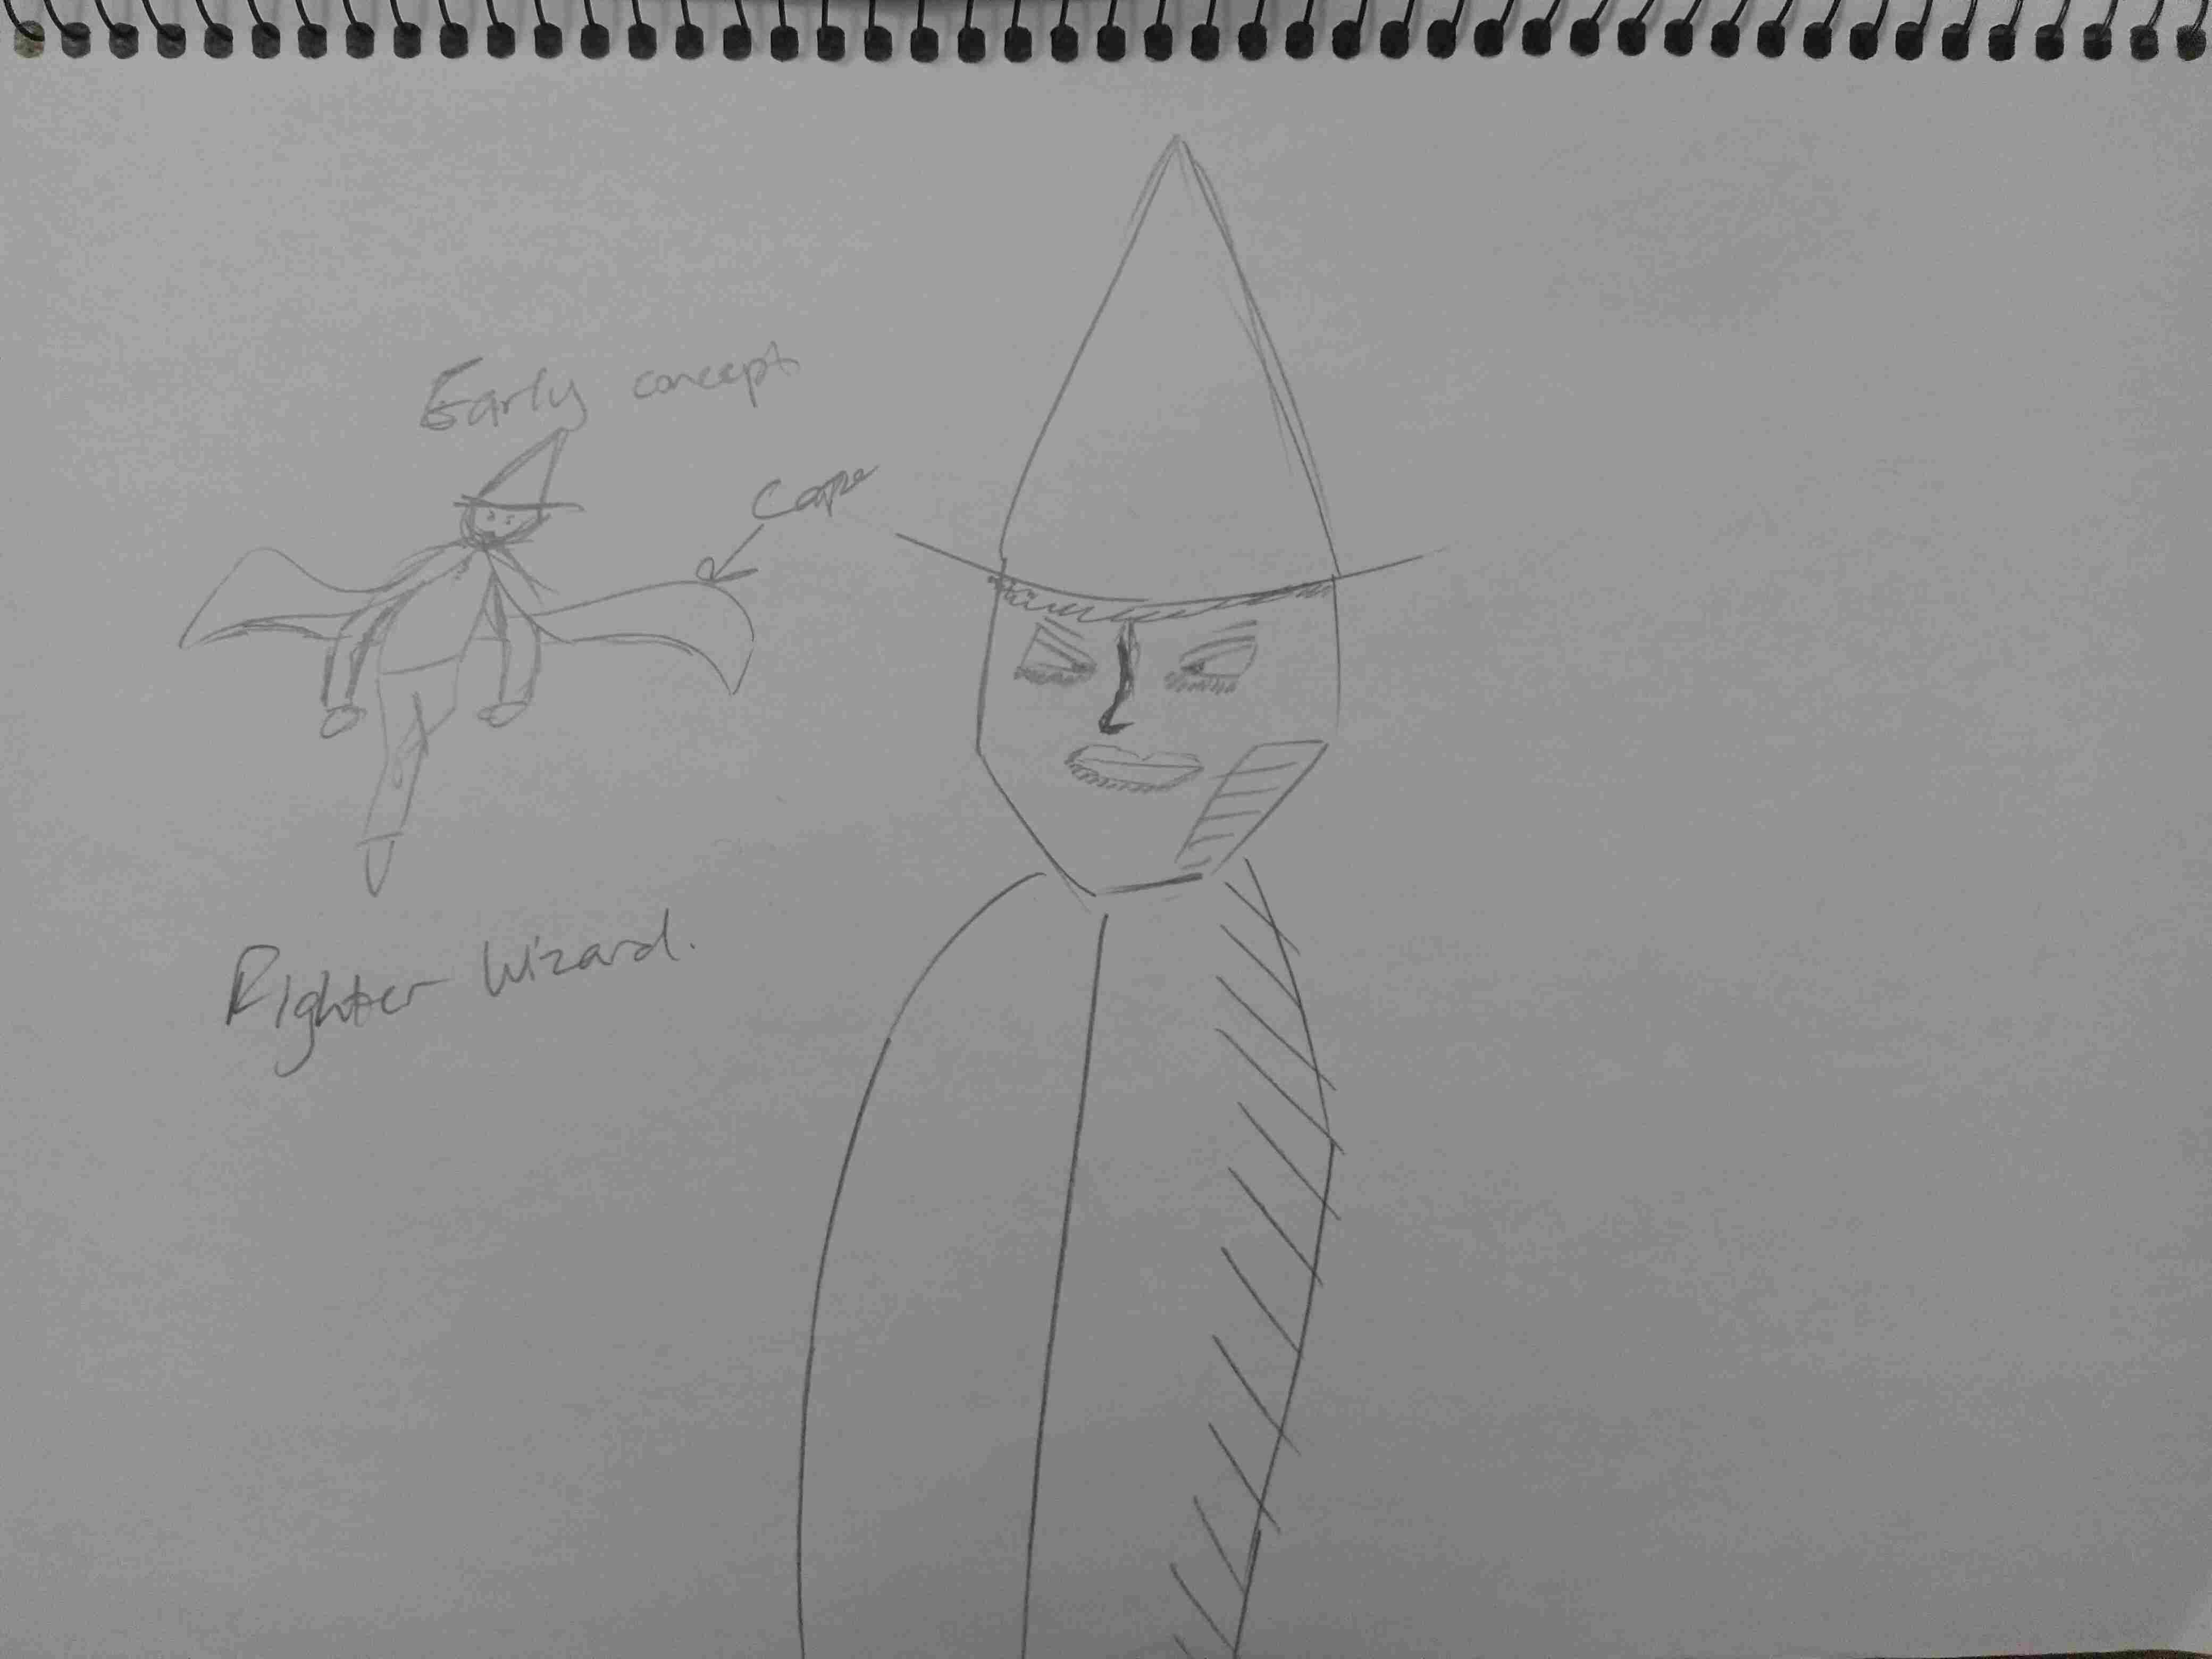 Early concept
Cape
Fighter Wizard.